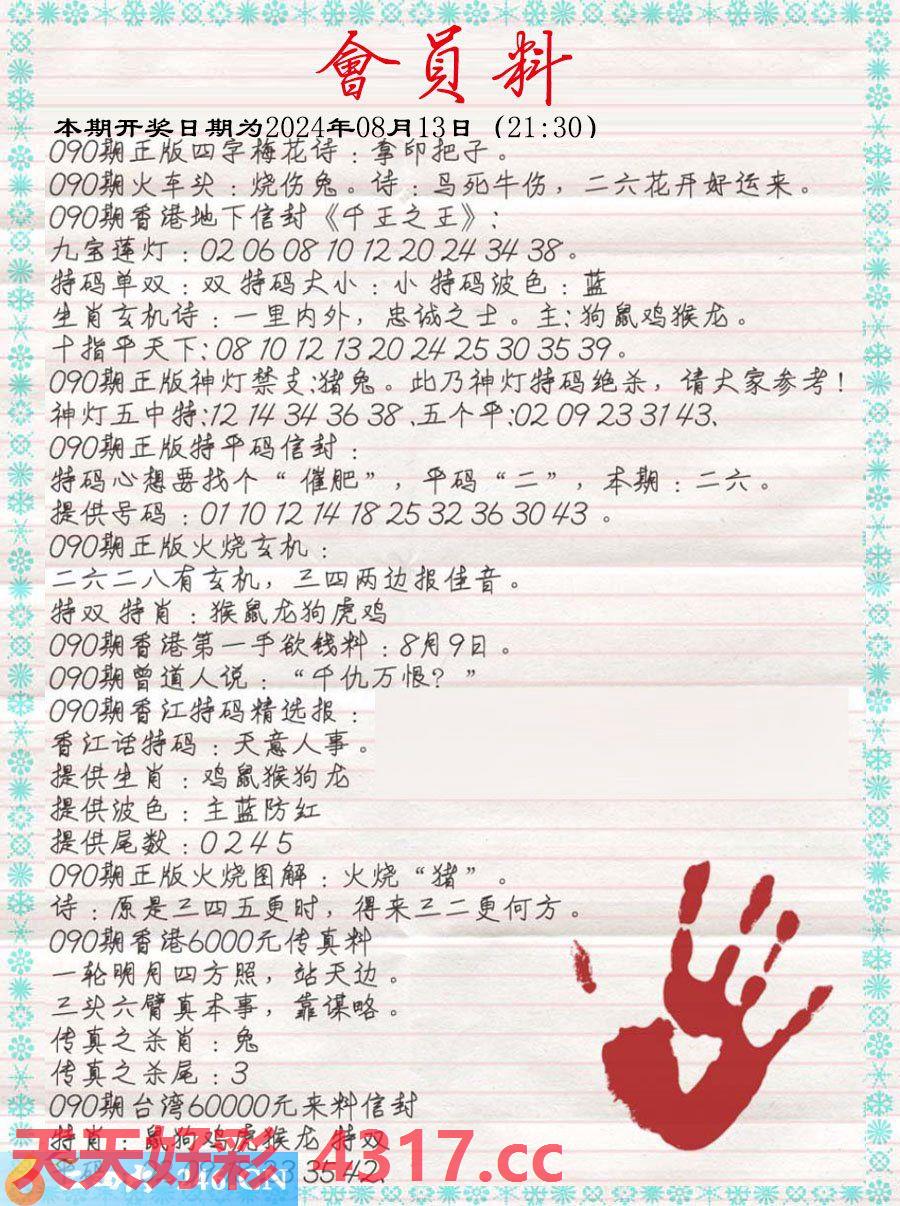 會員料
本期开奖日期为2024年08月13日（21:30）
090期正版四字梅花诗：拿印把子。
090期火车头：烧伤兔。诗：鸟死牛伤，二六花开好运来。
090期香港地下信封《千王之王》:
九宝莲灯：02 06 08 10 12 20 24 34 38。
特码单双：双 特码大小：小 特码波色：蓝
生肖玄机诗：一里内外，忠诚之士。主:狗鼠鸡猴龙。
十指平天下:08 10 12 13 20 24 25 30 35 39。
090期正版神灯禁支:猪兔。此乃神灯特码绝杀，请大家参考！
神灯五中特:12 14 34 36 38、五个平:02 09 23 31 43、
090期正版特平码信封：
特码心想要找个“催肥”，平码“二”，本期：二六。
提供号码：01 10 12 14 18 25 32 36 30 43 。
090期正版火烧玄机：
二六二八有玄机，三四两边报佳音。
特双 特肖：猴鼠龙狗虎鸡
090期香港第一手欲钱料：8月9日。
090期曾道人说：“千仇万恨？”
090期香江特码精选报：
香江话特码：天意人事。
提供生肖：鸡鼠猴狗龙
提供波色：主蓝防红
提供尾数：0 2 4 5
090期正版火烧图解：火烧“猪”。
诗：原是三四五更时，得来三二更何方。
090期香港6000元传真料
一轮明月四方照，站天边。
三头六臂真本事，靠谋略。
传真之杀肖：兔
传真之杀尾：3
090期台湾60000元来料信封
特肖：鼠狗鸡虎猴龙 特双
天天好彩 4317.cc
35 42、